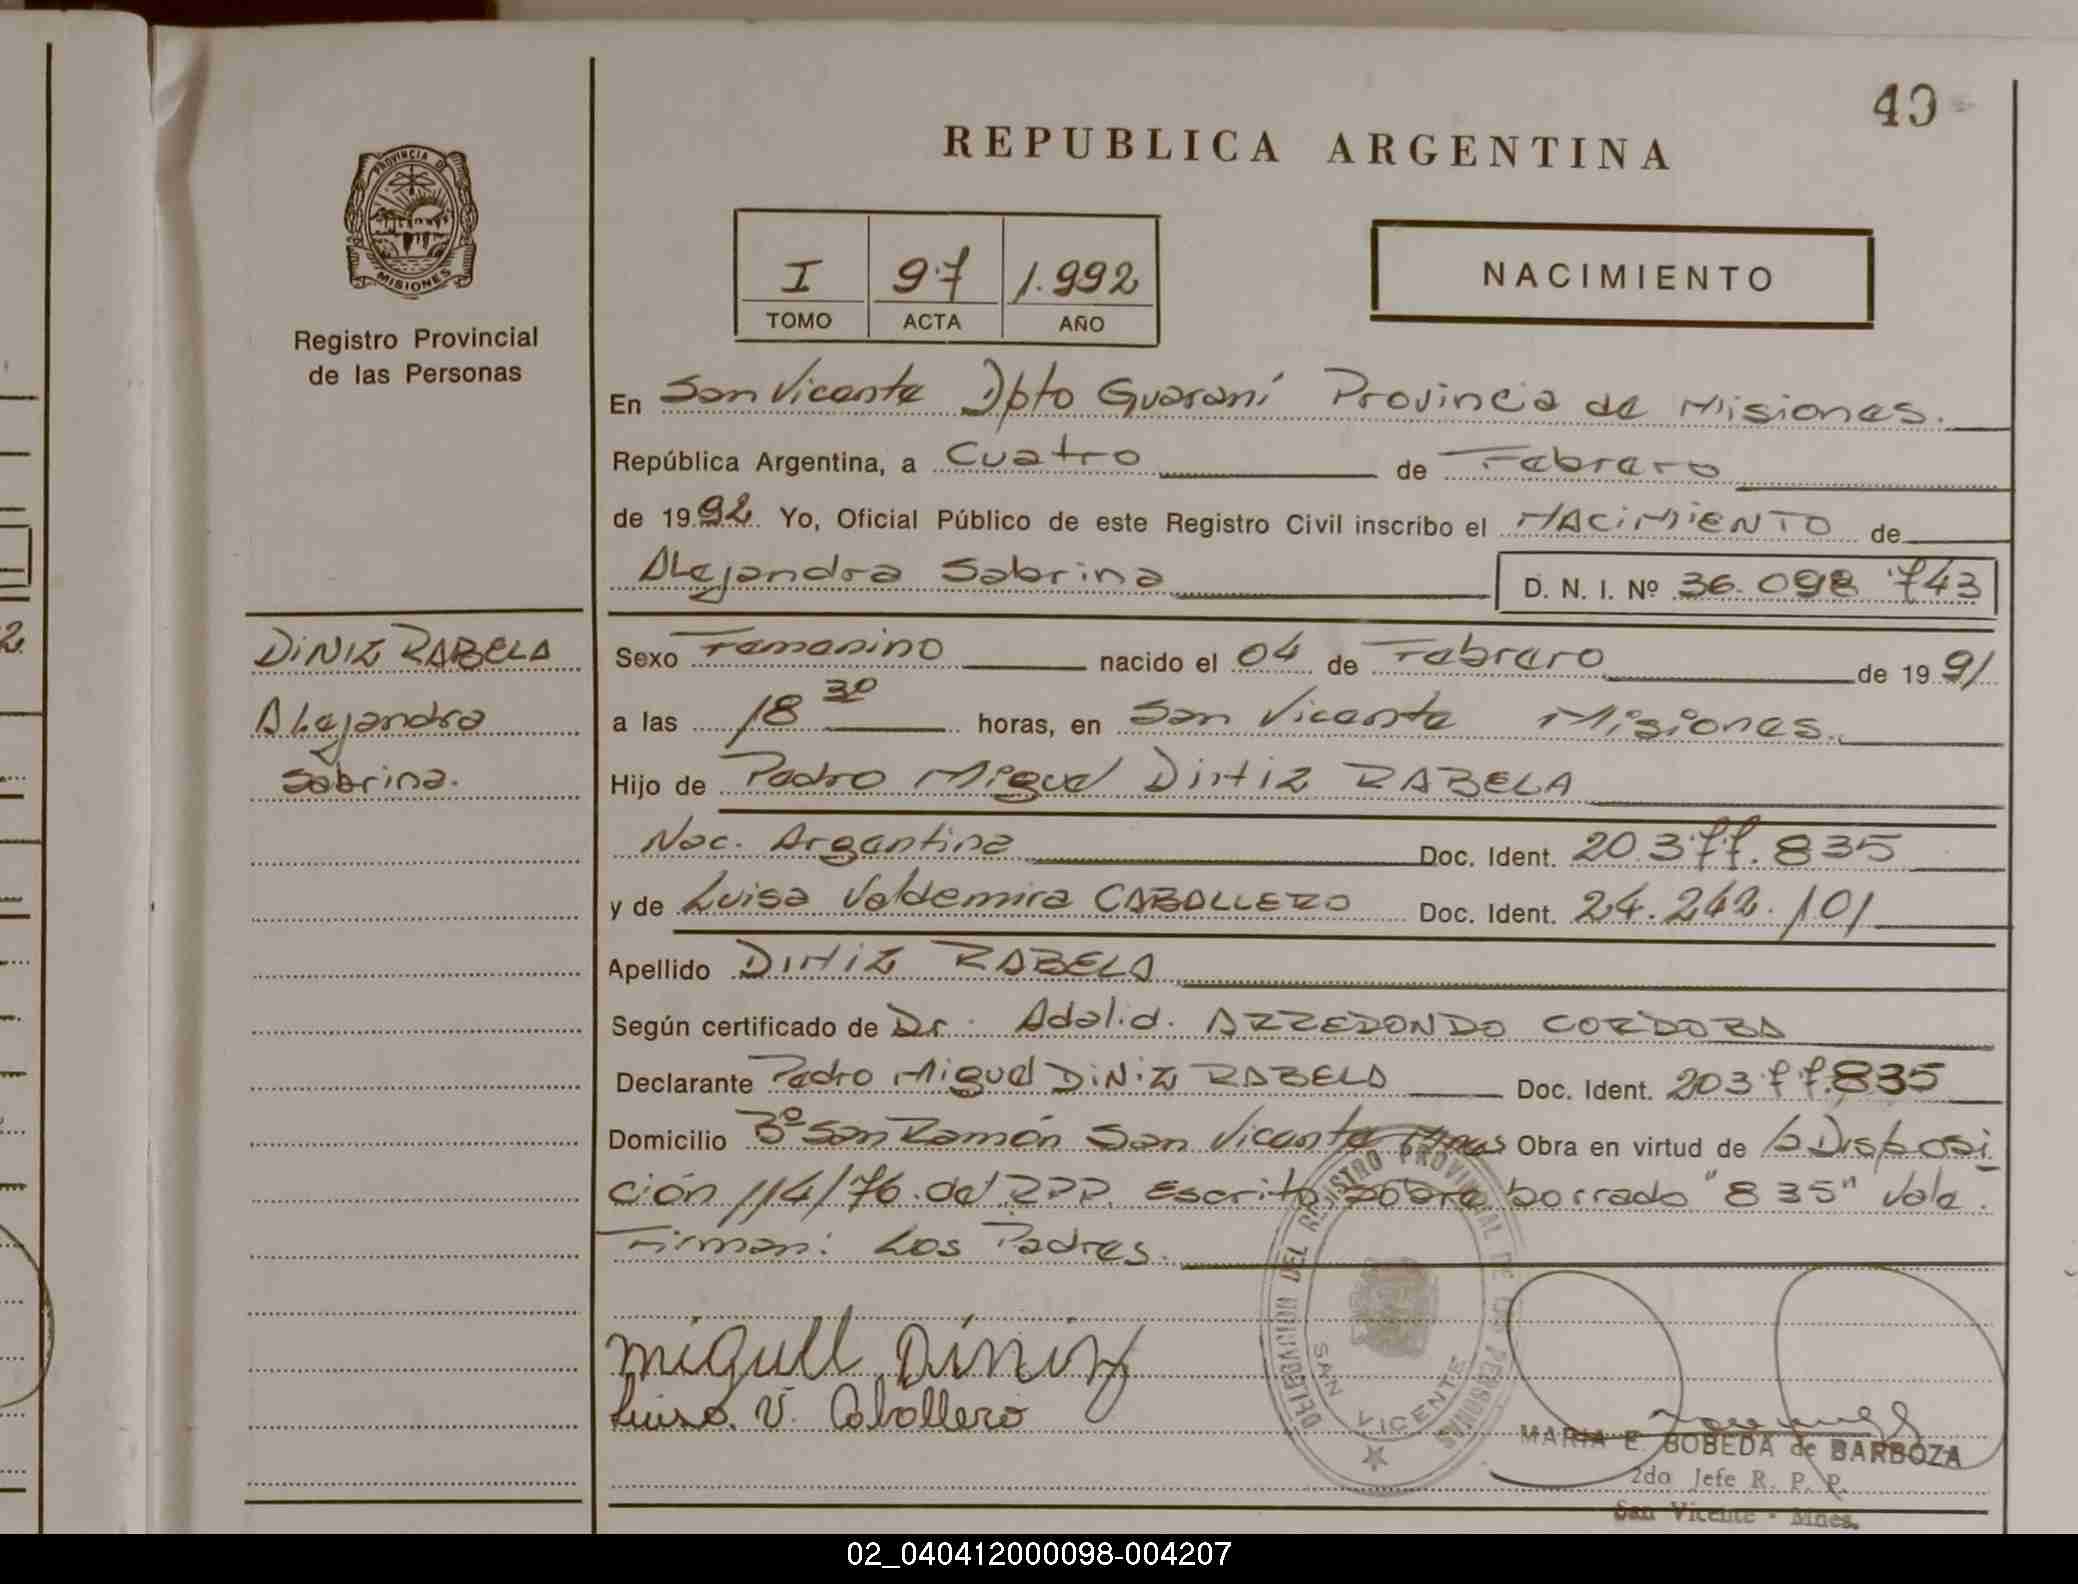 49
REPUBLICA ARGENTINA
PROVINCIA DE
MISIONES
Registro Provincial
de las Personas
I 97 1.992
TOMO ACTA AÑO
NACIMIENTO
En San Vicente Dpto Guaraní Provincia de Misiones.
República Argentina, a Cuatro de Febrero
de 1992. Yo, Oficial Público de este Registro Civil inscribo el NACIMIENTO de
Alejandra Sabrina D. N. I. Nº 36.098 743
DINIZ RABELA
Alejandra
Sabrina.
Sexo Femenino nacido el 04 de Febrero de 1991
a las 18 30 horas, en San Vicente Misiones.
Hijo de Pedro Miguel DINIZ RABELA
Nac. Argentina Doc. Ident. 20.377.835
y de Luisa Valdemira CABALLERO Doc. Ident. 24.242.101
Apellido DINIZ RABELA
Según certificado de Dr. Adalid. ARREDONDO CORDOBA
Declarante Pedro Miguel DINIZ RABELA Doc. Ident. 20377.835
Domicilio Bº San Ramón San Vicente Mnes Obra en virtud de la Disposi
ción 114/76. del RPP. Escrito sobre borrado "835" Vale.
Firman: Los Padres.
DELEGACION DEL REGISTRO PROVINCIAL DE LAS PERSONAS
SAN VICENTE
miguel Díniz
Luisa. V. Caballero
MARIA E. BOBEDA de BARBOZA
2do Jefe R. P. P.
San Vicente - Mnes.
02_040412000098-004207